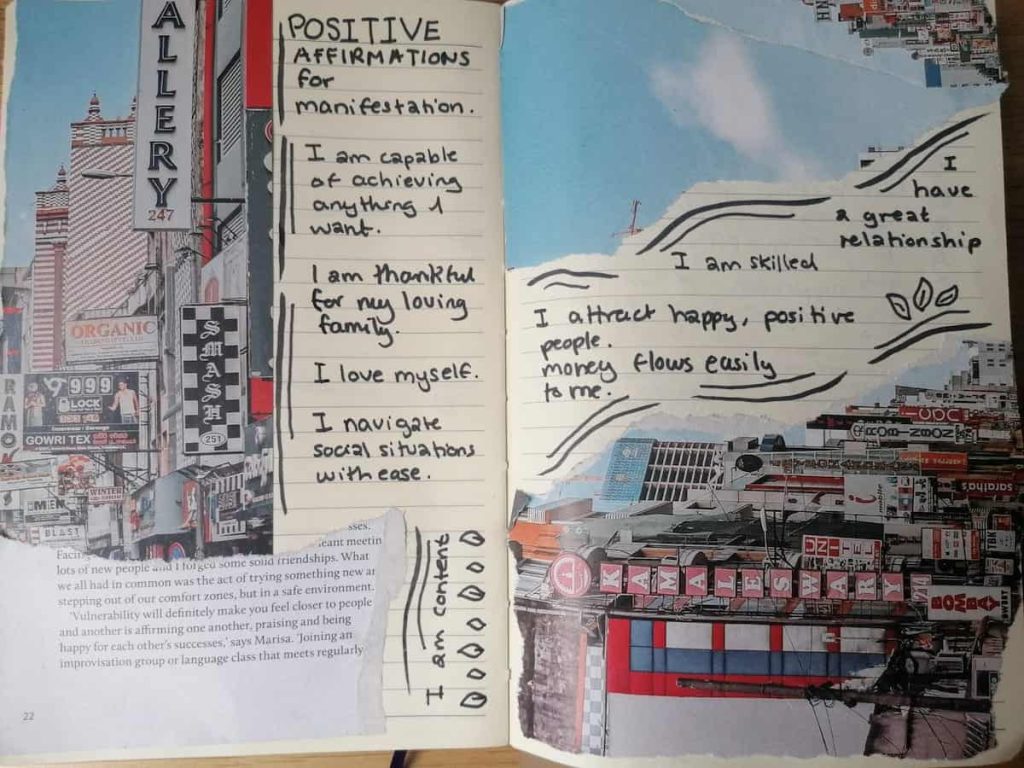 POSITIVE
AFFIRMATIONS
for
manifestation.
I am capable
of achieving
anything I
want.
I am thankful
for my loving
family.
I love myself.
I navigate
social situations
with ease.
I am content
ALLERY
247
ORGANIC
SMASH
251
999
LOCK
GOWRI TEX
RAMO
WINTER
MEN
BLAST
sses.
eant meetin
Facin
lots of new people and I forged some solid friendships. What
we all had in common was the act of trying something new ar
stepping out of our comfort zones, but in a safe environment.
'Vulnerability will definitely make you feel closer to people
and another is affirming one another, praising and being
happy for each other's successes,' says Marisa. 'Joining an
improvisation group or language class that meets regularly
22
I
have
a great
relationship
I am skilled
I attract happy, positive
people.
money flows easily
to me.
UNITE
KAMALESWARY
BOMBAY